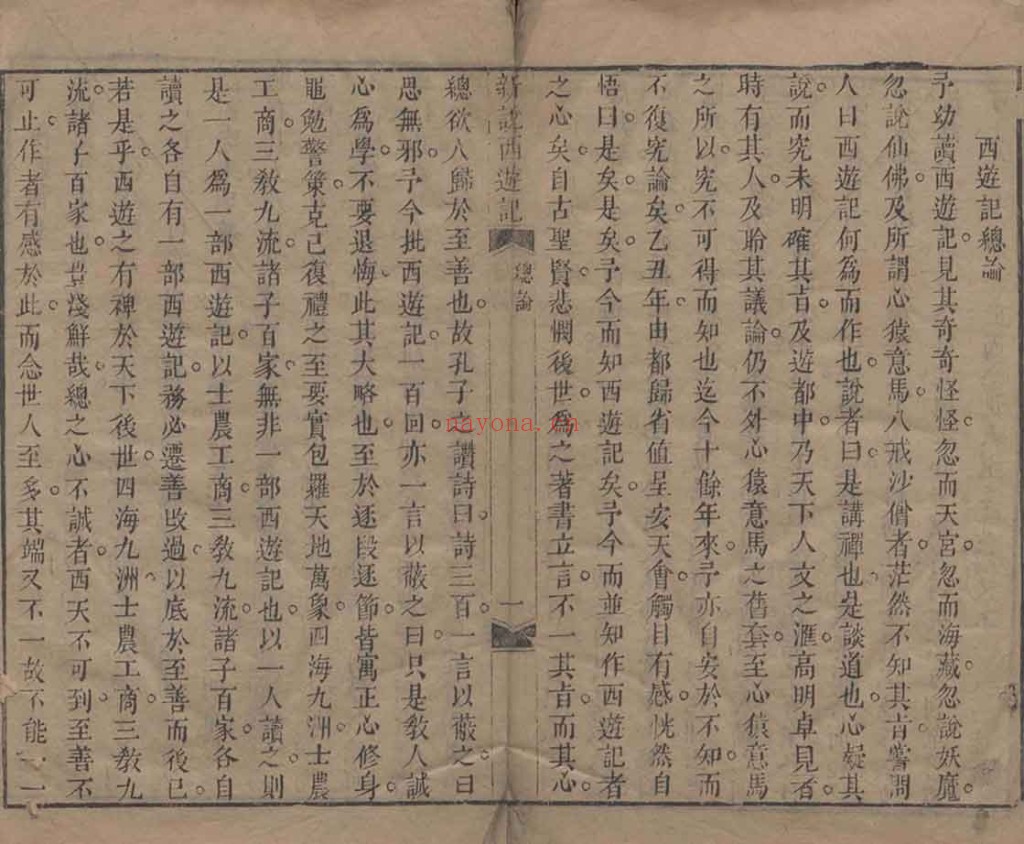 西遊記總論
予幼讀西遊記見其奇奇怪怪忽而天宮忽而海藏忽說妖魔
忽說仙佛及所謂心猿意馬八戒沙僧者茫然不知其旨嘗問
人曰西遊記何為而作也說者曰是講禪也是談道也心疑其
說而究未明確其旨及遊都中乃天下人文之滙高明卓見者
時有其人及聆其議論仍不外心猿意馬之舊套至心猿意馬
之所以究不可得而知也迄今十餘年來予亦自安於不知而
不復究論矣乙丑年由都歸省值呈安天會觸目有感恍然自
悟曰是矣是矣予今而知西遊記矣予今而並知作西遊記者
之心矣自古聖賢悲憫後世為之著書立言不一其旨而其心
新說西遊記 總論 一
總欲人歸於至善也故孔子之讚詩曰詩三百一言以蔽之曰
思無邪予今批西遊記一百回亦一言以蔽之曰只是教人誠
心為學不要退悔此其大略也至於逐段逐節皆寓正心修身
黽勉警策克己復禮之至要實包羅天地萬象四海九洲士農
工商三教九流諸子百家無非一部西遊記也以一人讀之則
是一人為一部西遊記以士農工商三教九流諸子百家各自
讀之各自有一部西遊記務必遷善改過以底於至善而後已
若是乎西遊之有裨於天下後世四海九洲士農工商三教九
流諸子百家也豈淺鮮哉總之心不誠者西天不可到至善不
可止作者有感於此而念世人至多其端又不一故不能一一
nayona.cn